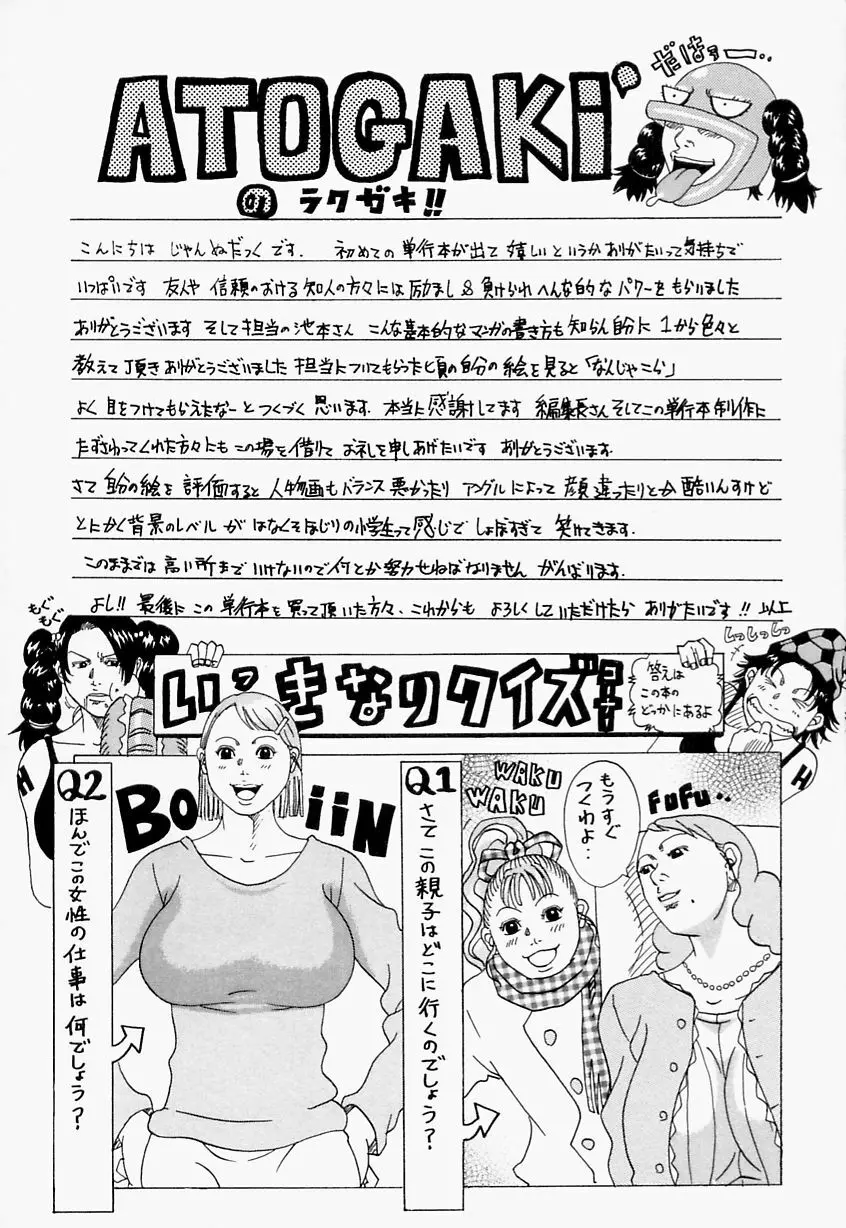 だはァー‥
ATOGAKi
の
ラクガキ!!
こんにちは じゃんぬだっく です. 初めての 単行本が出て 嬉しいというかありがたいって気持ちで
いっぱいです 友人や 信頼のおける知人の方々には励まし&負けられへんな的なパワーをもらいました
ありがとうございます そして担当の池本さん こんな基本的なマンガの書き方も知らん自分に 1から色々と
教えて頂きありがとうございました 担当についてもらった頃の自分の絵を見ると「なんじゃこら」
よく 目をつけてもらえたなーとつくづく 思います. 本当に感謝してます 編集長さんそしてこの単行本制作に
たずさわってくれた方々にも この場を借りて お礼を申しあげたいです ありがとうございます.
さて 自分の絵を 評価すると 人物画もバランス悪かったり アングルによって 顔違ったりとか酷いんすけど
とにかく背景のレベル が はなくそほじりの小学生って感じで しょぼすぎて 笑けてきます.
このままでは 高い所まで いけないので何とか努力せねばなりません がんばります.
よし!! 最後に この 単行本を買って頂いた方々、これからも よろしくしていただけたら ありがたいです!! 以上
もぐもぐ
しっしっしっ
いっきなりクイズコーナー
答えは
この本の
どっかにあるよ
Q1
さて この親子はどこに行くのでしょう?
WAKU
WAKU
もうすぐ
つくわよ‥
FuFu‥
Q2
ほんでこの女性の仕事は何でしょう?
BO iiN
H
H